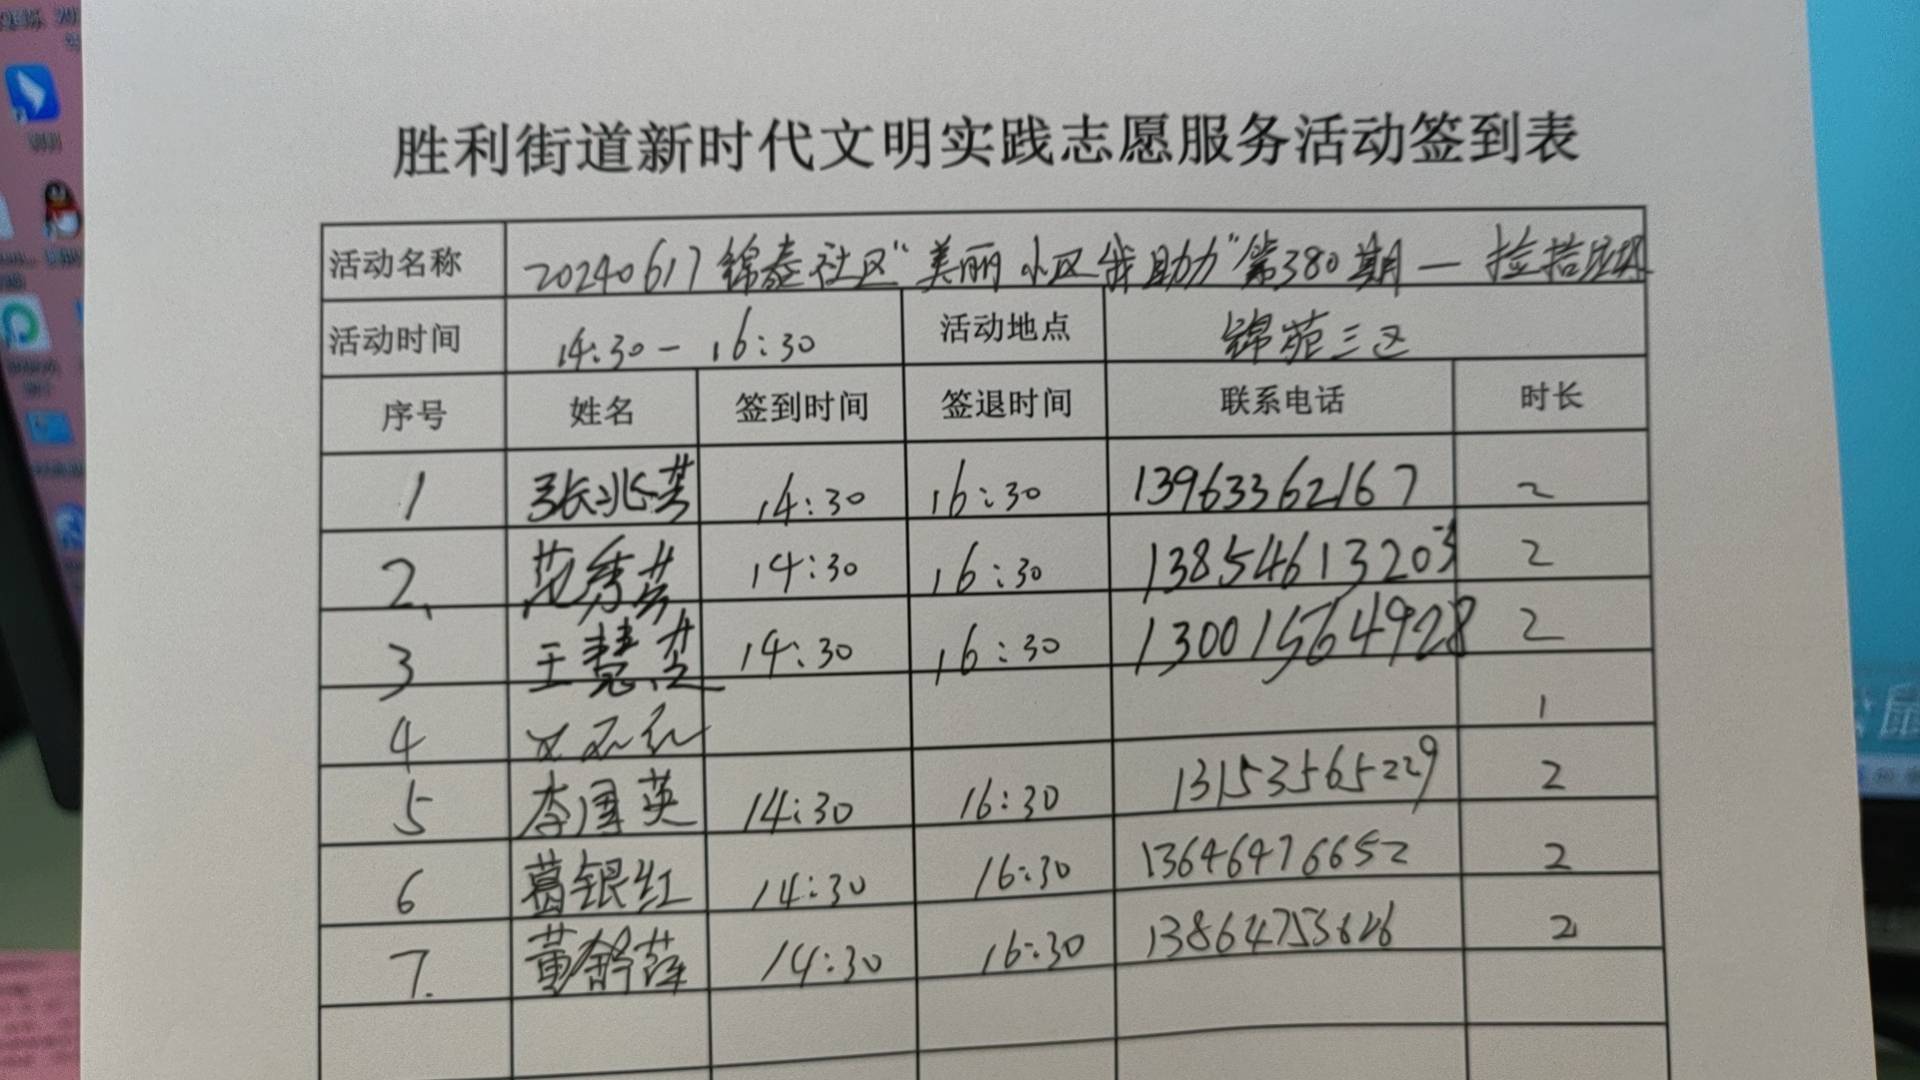 胜利街道新时代文明实践志愿服务活动签到表
活动名称 20240617锦泰社区“美丽小区我助力”第380期—捡拾垃圾
活动时间 14:30-16:30 活动地点 锦苑三区
序号 姓名 签到时间 签退时间 联系电话 时长
1 张兆芳 14:30 16:30 13963362167 2
2、 范秀芳 14:30 16:30 13854613203 2
3 王慧芝 14:30 16:30 13001564928 2
4 1
5 李国英 14:30 16:30 13153565229 2
6 葛银红 14:30 16:30 13646476652 2
7. 董舒萍 14:30 16:30 2